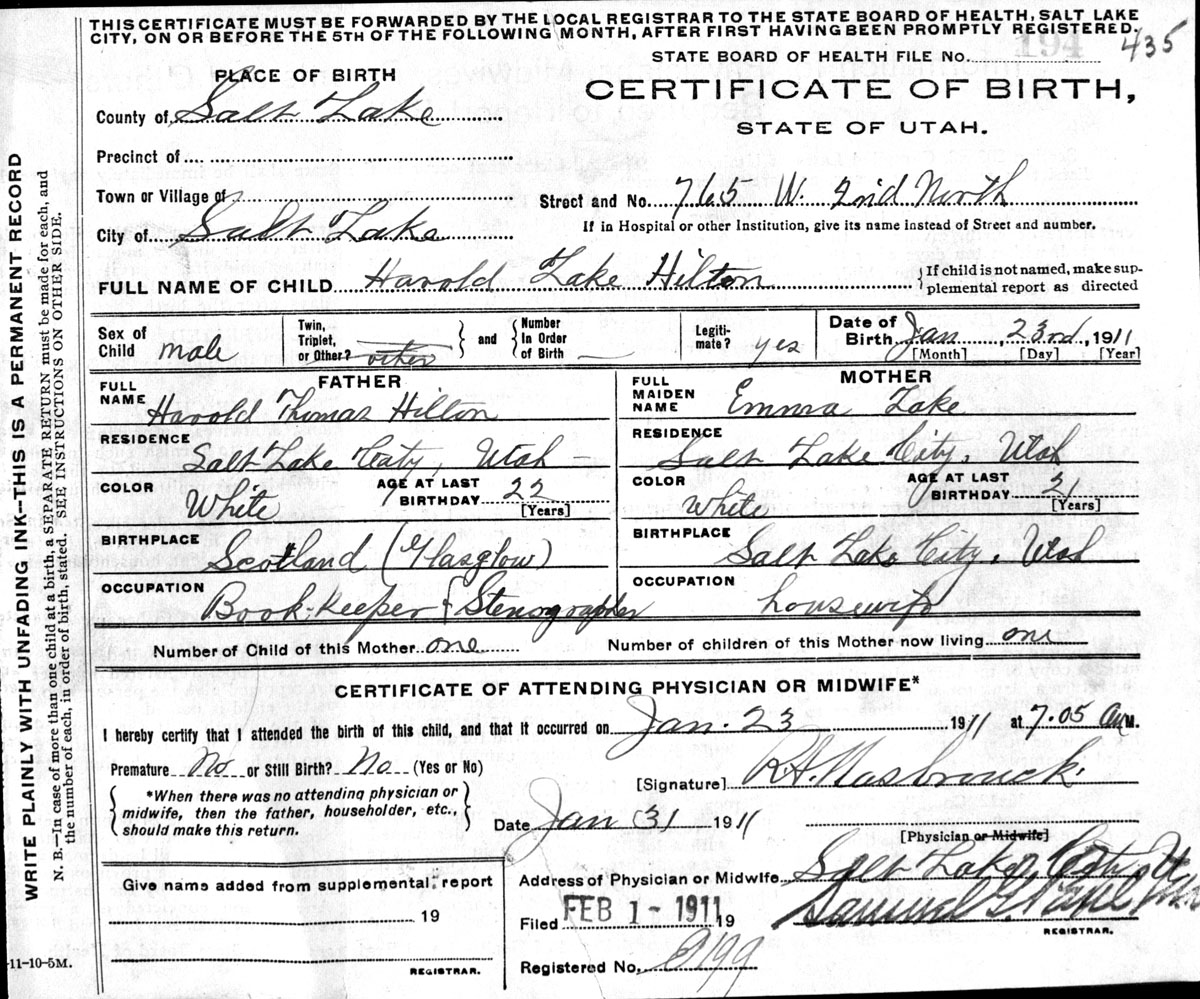 THIS CERTIFICATE MUST BE FORWARDED BY THE LOCAL REGISTRAR TO THE STATE BOARD OF HEALTH, SALT LAKE
CITY, ON OR BEFORE THE 5TH OF THE FOLLOWING MONTH, AFTER FIRST HAVING BEEN PROMPTLY REGISTERED.
194 435
STATE BOARD OF HEALTH FILE No.
PLACE OF BIRTH
CERTIFICATE OF BIRTH,
STATE OF UTAH.
County of Salt Lake
Precinct of
Town or Village of
Street and No. 765 W. 2nd North
City of Salt Lake
If in Hospital or other Institution, give its name instead of Street and number.
FULL NAME OF CHILD Harold Lake Hilton
{If child is not named, make sup-
plemental report as directed
Sex of Child male
Twin, Triplet, or Other? other
and
Number In Order of Birth —
Legiti-mate? yes
Date of Birth Jan, 23rd, 1911
[Month] [Day] [Year]
FATHER
FULL NAME Harold Thomas Hilton
RESIDENCE
Salt Lake City, Utah –
COLOR White AGE AT LAST BIRTHDAY 22 [Years]
BIRTHPLACE Scotland (Glasglow)
OCCUPATION Book-Keeper & Stenographer
MOTHER
FULL MAIDEN NAME Emma Lake
RESIDENCE
Salt Lake City, Utah
COLOR White AGE AT LAST BIRTHDAY 21 [Years]
BIRTHPLACE Salt Lake City, Utah
OCCUPATION housewife
Number of Child of this Mother one Number of children of this Mother now living one
CERTIFICATE OF ATTENDING PHYSICIAN OR MIDWIFE*
I hereby certify that I attended the birth of this child, and that it occurred on Jan. 23 1911 at 7.05 AM.
Premature No or Still Birth? No (Yes or No)
[Signature] R.A. Hasbrouck.
{*When there was no attending physician or
midwife, then the father, householder, etc.,
should make this return.}
Date Jan 31 1911
[Physician or Midwife]
Address of Physician or Midwife Salt Lake City Ut
Give name added from supplemental report
19
REGISTRAR.
Filed FEB 1 - 1911 19
Samuel G. Paul
REGISTRAR.
Registered No.
-11-10-5M.
WRITE PLAINLY WITH UNFADING INK--THIS IS A PERMANENT RECORD
N. B.—In case of more than one child at a birth, a SEPARATE RETURN must be made for each, and
the number of each, in order of birth, stated. SEE INSTRUCTIONS ON OTHER SIDE.